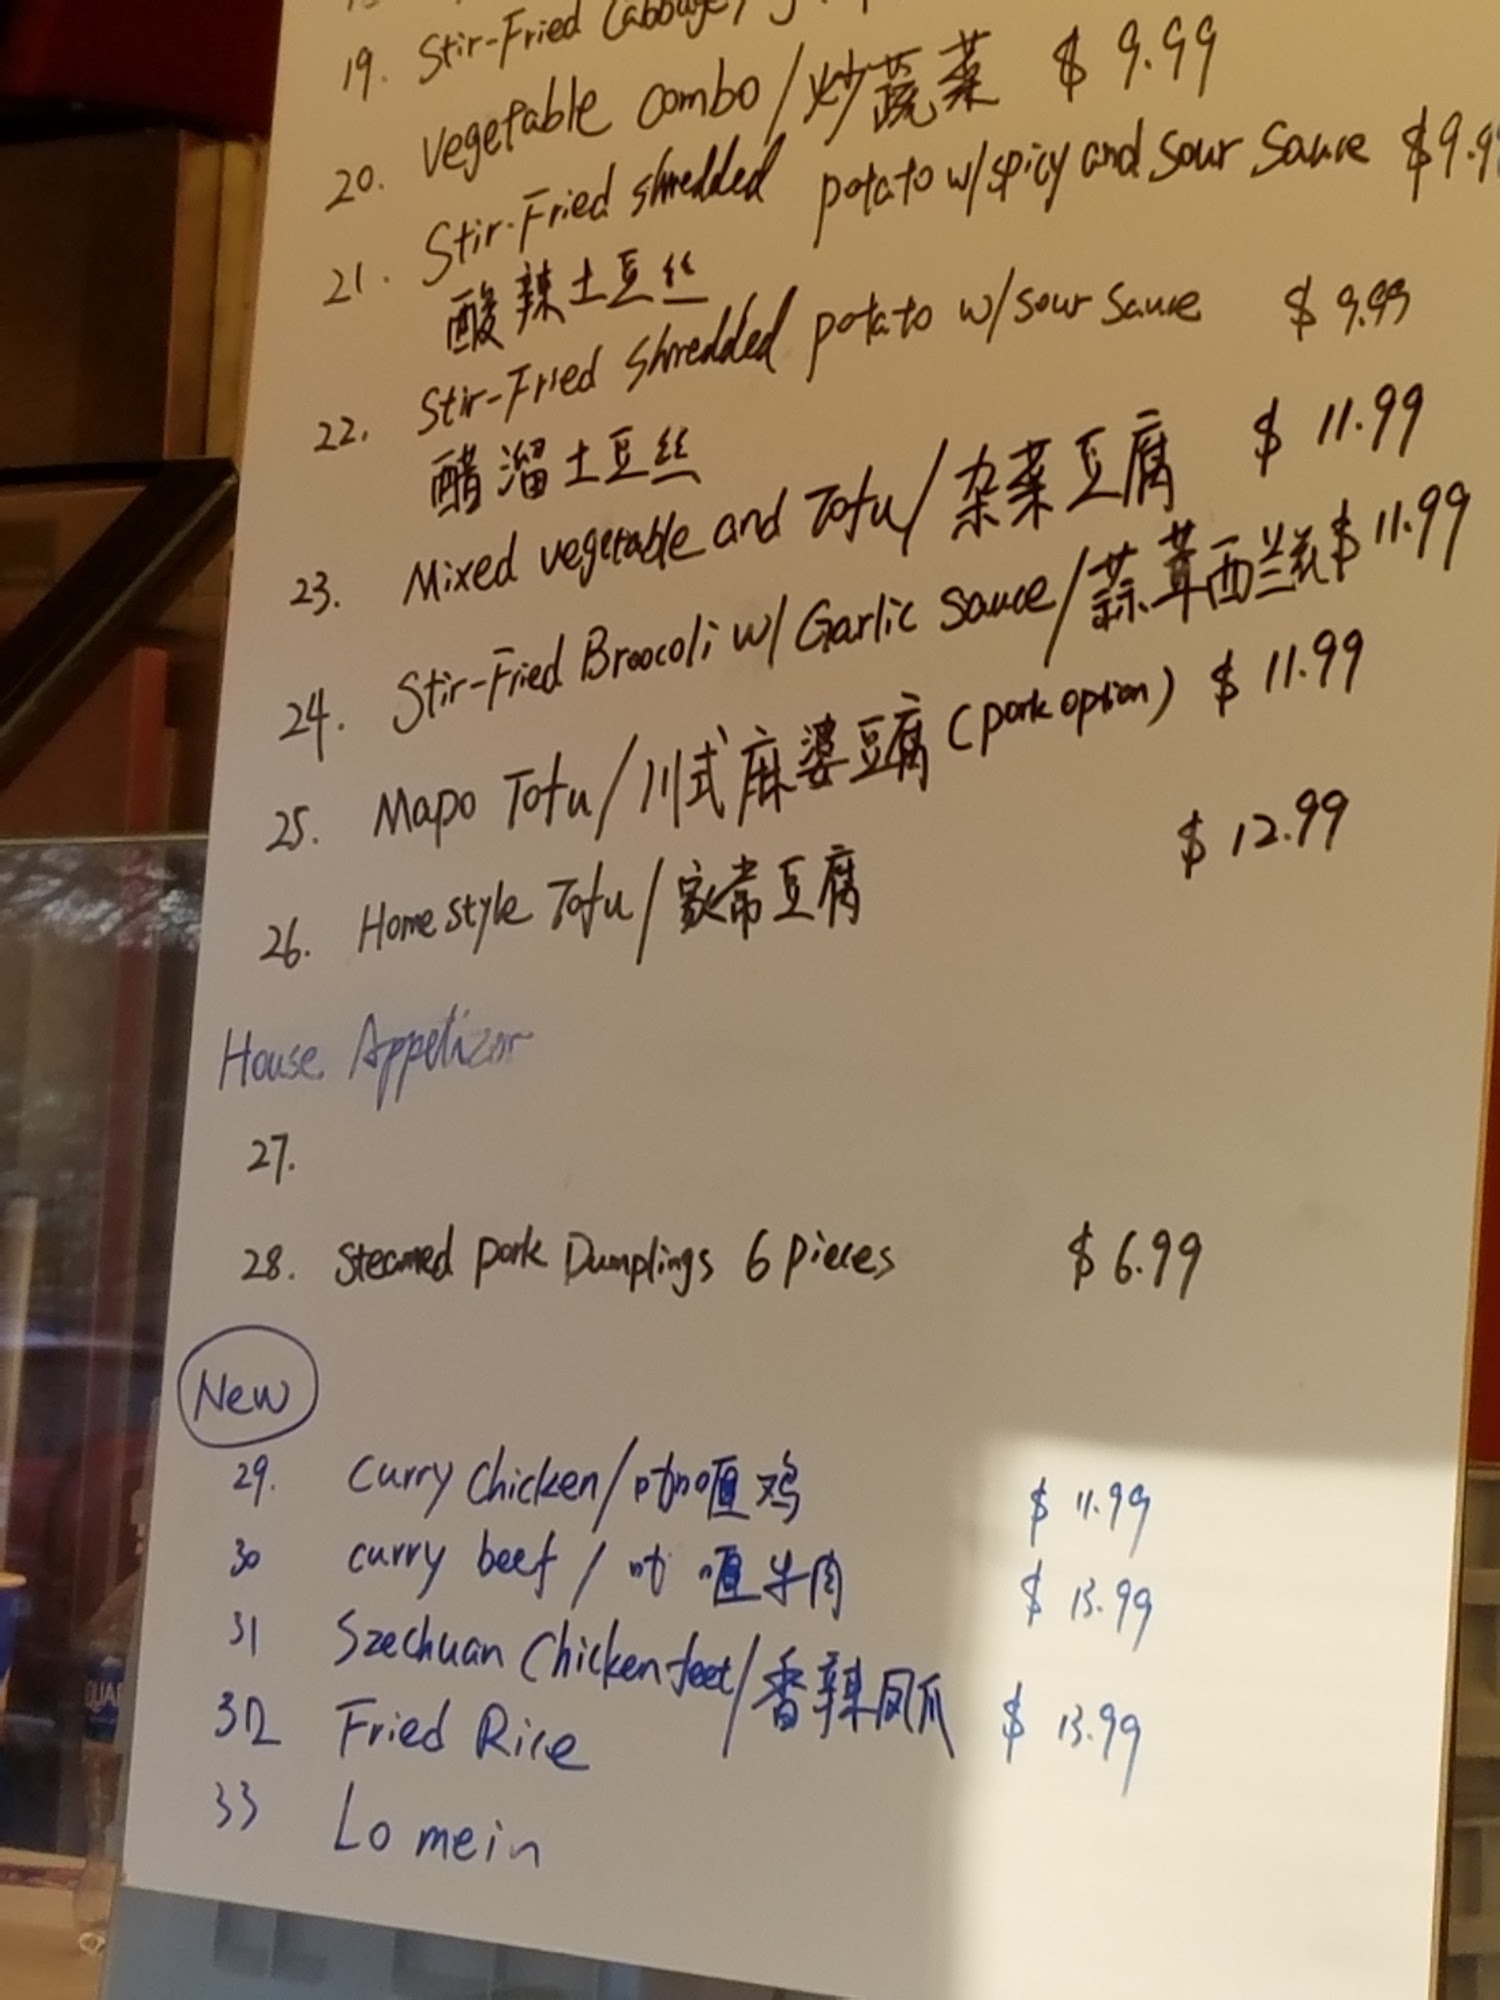 19. Stir-Fried Cabbage/
20. Vegetable combo/炒蔬菜 $9.99
21. Stir-Fried shredded potato w/spicy and sour sauce $9.9
酸辣土豆丝
22. Stir-Fried shredded potato w/sour sauce $9.99
醋溜土豆丝
23. Mixed vegetable and Tofu/杂菜豆腐 $11.99
24. Stir-Fried Broocoli w/ Garlic sauce/蒜茸西兰花 $11.99
25. Mapo Tofu/川式麻婆豆腐 (pork option) $11.99
26. Home style Tofu/家常豆腐 $12.99
House Appetizer
27.
28. Steamed pork Dumplings 6 pieces $6.99
New
29. Curry Chicken/咖喱鸡 $11.99
30 curry beef/咖喱牛肉 $13.99
31 Szechuan Chicken feet/香辣凤爪 $13.99
32 Fried Rice
33 Lo mein